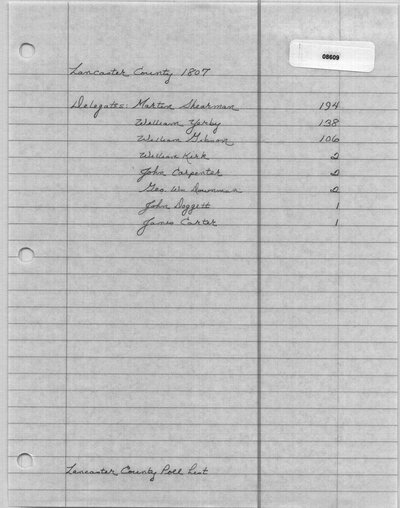 08609
Lancaster County 1807
Delegates: Martin Shearman 194
William Yerby 138
William Gibson 106
William Kirk 2
John Carpenter 2
Geo. Wm Downman 2
John Doggett 1
James Carter 1
Lancaster County Poll List